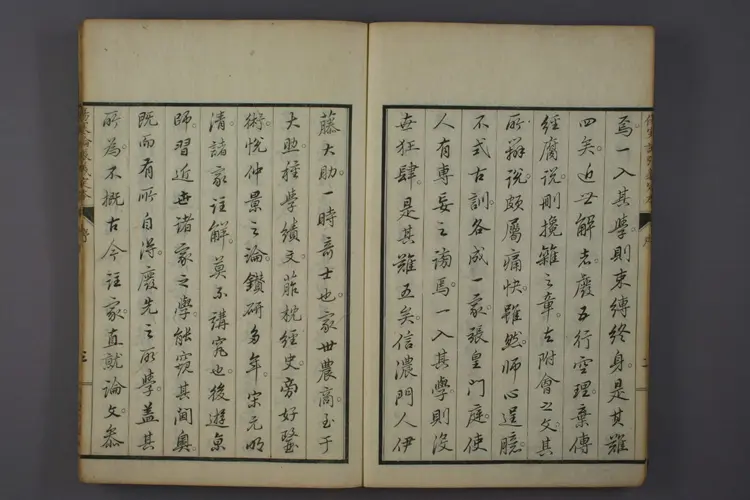 焉。一入其學。則束縛終身。是其難
四矣。近世解者。廢五行空理。棄傳
經腐說。刪攙雜之章。去附會之文。其
所辯說。頗屬痛快。雖然。師心逞臆。
不式古訓。各成一家。張皇門庭。使
人有專妄之謗焉。一入其學。則沒
世狂肆。是其難五矣。信濃門人伊
藤大助。一時奇士也。家世農商。至于
大助。種學績文。菲枕經史。旁好醫
術。悅仲景之論。鑽研多年。宋元明
清諸家註解。莫不講究也。後遊京
師。習近世諸家之學。能窺其閫奧。
既而有所自得。廢先之所學。蓋其
所為。不概古今註家。直就論文。參
三